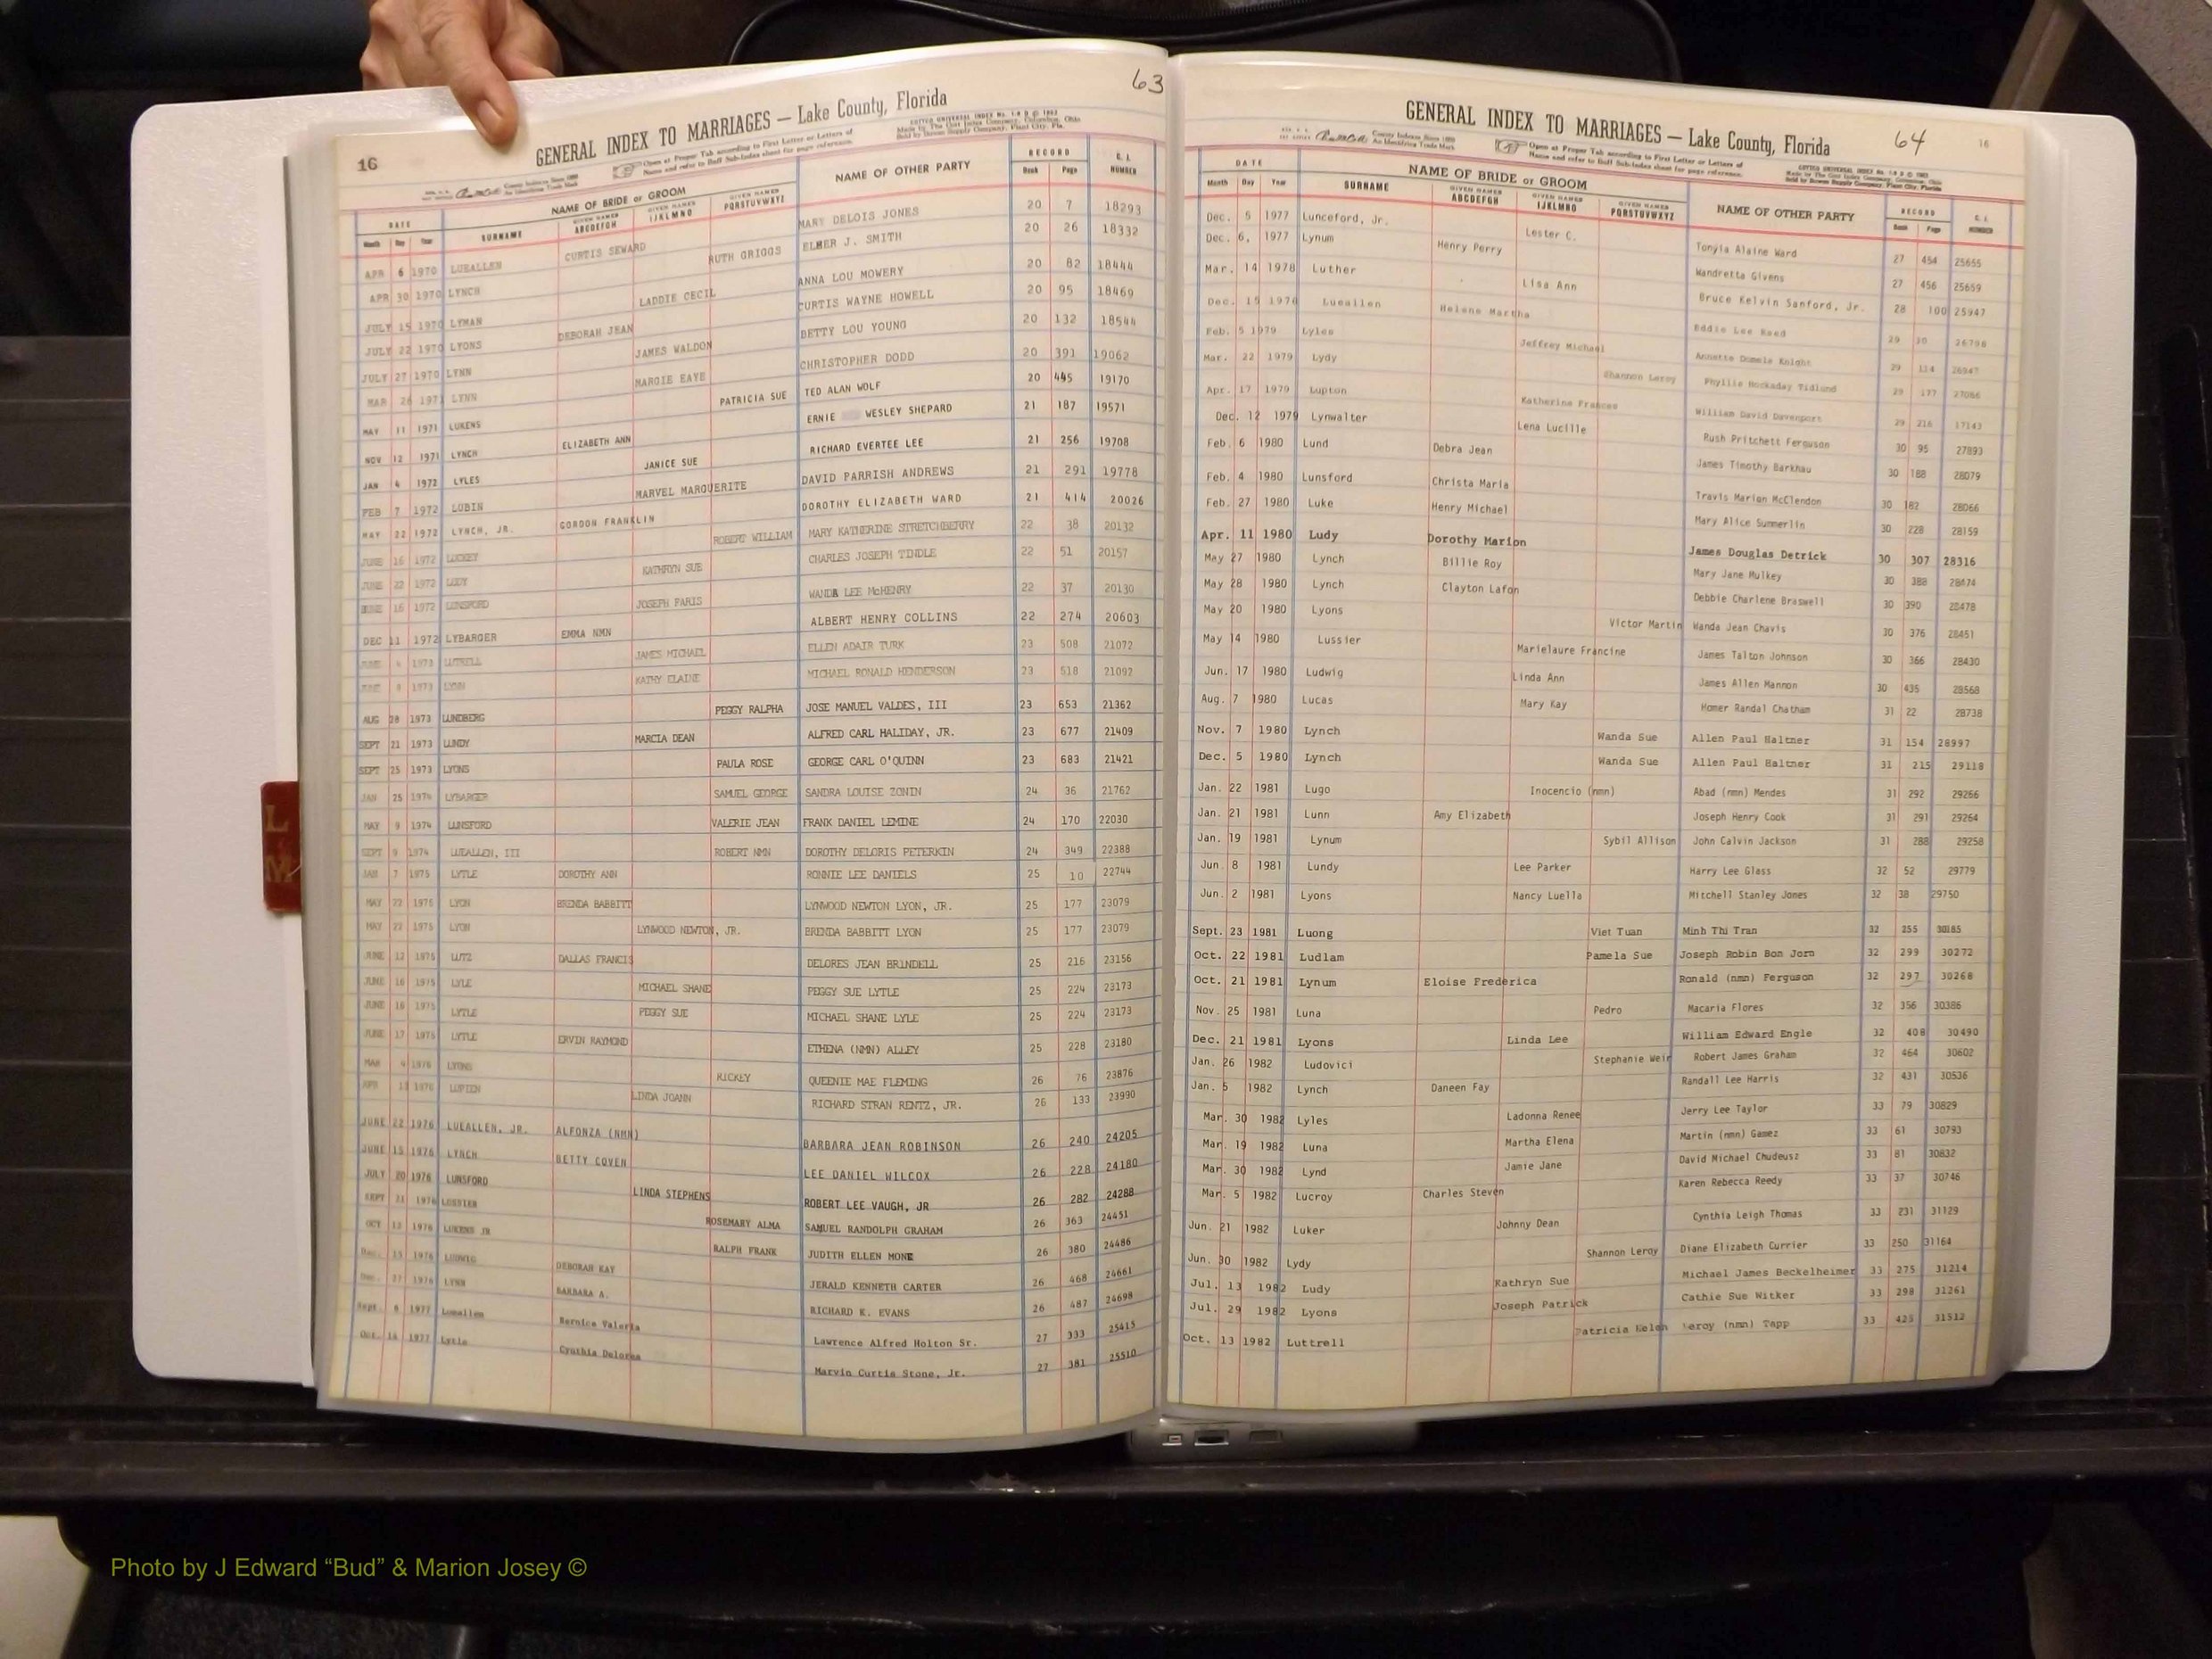 63
16
GENERAL INDEX TO MARRIAGES — Lake County, Florida
Open at Proper Tab according to First Letter or Letters of
Name and refer to Buff Sub-Index sheet for page reference.
COTT'S UNIVERSAL INDEX
Made by The Cott Index Company, Columbus, Ohio
Sold by Bowen Supply Company, Plant City, Fla.
DATE NAME OF BRIDE or GROOM NAME OF OTHER PARTY RECORD G. I. NUMBER
Month Day Year SURNAME GIVEN NAMES ABCDEFGH GIVEN NAMES IJKLMNO GIVEN NAMES PQRSTUVWXYZ Book Page
APR 6 1970 LUEALLEN CURTIS SEWARD MARY DELOIS JONES 20 7 18293
APR 30 1970 LYNCH RUTH GRIGGS ELMER J. SMITH 20 26 18332
JULY 15 1970 LYMAN LADDIE CECIL ANNA LOU MOWERY 20 82 18444
JULY 22 1970 LYONS DEBORAH JEAN CURTIS WAYNE HOWELL 20 95 18469
JULY 27 1970 LYNN JAMES WALDON BETTY LOU YOUNG 20 132 18544
MAR 26 1971 LYNN MARGIE FAYE CHRISTOPHER DODD 20 391 19062
MAY 11 1971 LUKENS PATRICIA SUE TED ALAN WOLF 20 445 19170
NOV 12 1971 LYNCH ELIZABETH ANN ERNIE WESLEY SHEPARD 21 187 19571
JAN 4 1972 LYLES JANICE SUE RICHARD EVERTEE LEE 21 256 19708
FEB 7 1972 LUBIN MARVEL MARGUERITE DAVID PARRISH ANDREWS 21 291 19778
MAY 22 1972 LYNCH, JR. GORDON FRANKLIN DOROTHY ELIZABETH WARD 21 414 20026
JUNE 16 1972 LUCKEY ROBERT WILLIAM MARY KATHERINE STRETCHBERRY 22 38 20132
JUNE 22 1972 LUDY KATHRYN SUE CHARLES JOSEPH TINDLE 22 51 20157
JUNE 16 1972 LUNSFORD JOSEPH FARIS WANDA LEE McHENRY 22 37 20130
DEC 11 1972 LYBARGER EMMA NMN ALBERT HENRY COLLINS 22 274 20603
JUNE 4 1973 LUTRELL JAMES MICHAEL ELLEN ADAIR TURK 23 508 21072
JUNE 8 1973 LYNN KATHY ELAINE MICHAEL RONALD HENDERSON 23 518 21092
AUG 28 1973 LUNDBERG PEGGY RALPHA JOSE MANUEL VALDES, III 23 653 21362
SEPT 21 1973 LUNDY MARCIA DEAN ALFRED CARL HALIDAY, JR. 23 677 21409
SEPT 25 1973 LYONS PAULA ROSE GEORGE CARL O'QUINN 23 683 21421
JAN 25 1974 LYBARGER SAMUEL GEORGE SANDRA LOUISE ZONIN 24 36 21762
MAY 9 1974 LUNSFORD VALERIE JEAN FRANK DANIEL LEMINE 24 170 22030
SEPT 9 1974 LUEALLEN, III ROBERT NMN DOROTHY DELORIS PETERKIN 24 349 22388
JAN 7 1975 LYTLE DOROTHY ANN RONNIE LEE DANIELS 25 10 22744
MAY 22 1975 LYON BRENDA BABBITT LYNWOOD NEWTON LYON, JR. 25 177 23079
MAY 22 1975 LYON LYNWOOD NEWTON, JR. BRENDA BABBITT LYON 25 177 23079
JUNE 12 1975 LUTZ DALLAS FRANCIS DELORES JEAN BRINDELL 25 216 23156
JUNE 16 1975 LYLE MICHAEL SHANE PEGGY SUE LYTLE 25 224 23173
JUNE 16 1975 LYTLE PEGGY SUE MICHAEL SHANE LYLE 25 224 23173
JUNE 17 1975 LYTLE ERVIN RAYMOND ETHENA (NMN) ALLEY 25 228 23180
MAR 4 1976 LYONS RICKEY QUEENIE MAE FLEMING 26 76 23876
APR 13 1976 LUPIEN LINDA JOANN RICHARD STRAN RENTZ, JR. 26 133 23990
JUNE 22 1976 LUEALLEN, JR. ALFONZA (NMN) BARBARA JEAN ROBINSON 26 240 24205
JUNE 15 1976 LYNCH BETTY COVEN LEE DANIEL WILCOX 26 228 24180
JULY 20 1976 LUNSFORD LINDA STEPHENS ROBERT LEE VAUGH, JR 26 282 24288
SEPT 21 1976 LUSSIER ROSEMARY ALMA SAMUEL RANDOLPH GRAHAM 26 363 24451
OCT 12 1976 LUKENS JR RALPH FRANK JUDITH ELLEN MONE 26 380 24486
Dec. 15 1976 LUDWIG DEBORAH KAY JERALD KENNETH CARTER 26 468 24661
Dec. 27 1976 LYNN BARBARA A. RICHARD K. EVANS 26 487 24698
Sept. 6 1977 Lueallen Bernice Valeria Lawrence Alfred Holton Sr. 27 333 25415
Oct. 14 1977 Lytle Cynthia Delores Marvin Curtis Stone, Jr. 27 381 25510
L
M
64
16
GENERAL INDEX TO MARRIAGES — Lake County, Florida
Open at Proper Tab according to First Letter or Letters of
Name and refer to Buff Sub-Index sheet for page reference.
DATE NAME OF BRIDE or GROOM NAME OF OTHER PARTY RECORD G. I. NUMBER
Month Day Year SURNAME GIVEN NAMES ABCDEFGH GIVEN NAMES IJKLMNO GIVEN NAMES PQRSTUVWXYZ Book Page
Dec. 5 1977 Lunceford, Jr. Lester C. Tonyia Alaine Ward 27 454 25655
Dec. 6, 1977 Lynum Henry Perry Wandretta Givens 27 456 25659
Mar. 14 1978 Luther Lisa Ann Bruce Kelvin Sanford, Jr. 28 100 25947
Dec. 15 1978 Lueallen Helene Martha Eddie Lee Reed 29 30 26798
Feb. 5 1979 Lyles Jeffrey Michael Annette Domele Knight 29 114 26947
Mar. 22 1979 Lydy Shannon Leroy Phyllis Hockaday Tidlund 29 177 27086
Apr. 17 1979 Lupton Katherine Frances William David Davenport 29 216 17143
Dec. 12 1979 Lynwalter Lena Lucille Rush Pritchett Ferguson 30 95 27893
Feb. 6 1980 Lund Debra Jean James Timothy Barkhau 30 188 28079
Feb. 4 1980 Lunsford Christa Maria Travis Marion McClendon 30 182 28066
Feb. 27 1980 Luke Henry Michael Mary Alice Summerlin 30 228 28159
Apr. 11 1980 Ludy Dorothy Marion James Douglas Detrick 30 307 28316
May 27 1980 Lynch Billie Roy Mary Jane Mulkey 30 388 28474
May 28 1980 Lynch Clayton Lafon Debbie Charlene Braswell 30 390 28478
May 20 1980 Lyons Victor Martin Wanda Jean Chavis 30 376 28451
May 14 1980 Lussier Marielaure Francine James Talton Johnson 30 366 28430
Jun. 17 1980 Ludwig Linda Ann James Allen Mannon 30 435 28568
Aug. 7 1980 Lucas Mary Kay Homer Randal Chatham 31 22 28738
Nov. 7 1980 Lynch Wanda Sue Allen Paul Haltner 31 154 28997
Dec. 5 1980 Lynch Wanda Sue Allen Paul Haltner 31 215 29118
Jan. 22 1981 Lugo Inocencio (nmn) Abad (nmn) Mendes 31 292 29266
Jan. 21 1981 Lunn Amy Elizabeth Joseph Henry Cook 31 291 29264
Jan. 19 1981 Lynum Sybil Allison John Calvin Jackson 31 288 29258
Jun. 8 1981 Lundy Lee Parker Harry Lee Glass 32 52 29779
Jun. 2 1981 Lyons Nancy Luella Mitchell Stanley Jones 32 38 29750
Sept. 23 1981 Luong Viet Tuan Minh Thi Tran 32 255 30185
Oct. 22 1981 Ludlam Pamela Sue Joseph Robin Bon Jorn 32 299 30272
Oct. 21 1981 Lynum Eloise Frederica Ronald (nmn) Ferguson 32 297 30268
Nov. 25 1981 Luna Pedro Macaria Flores 32 356 30386
Dec. 21 1981 Lyons Linda Lee William Edward Engle 32 408 30490
Jan. 26 1982 Ludovici Stephanie Weir Robert James Graham 32 464 30602
Jan. 5 1982 Lynch Daneen Fay Randall Lee Harris 32 431 30536
Mar. 30 1982 Lyles Ladonna Renee Jerry Lee Taylor 33 79 30829
Mar. 19 1982 Luna Martha Elena Martin (nmn) Gamez 33 61 30793
Mar. 30 1982 Lynd Jamie Jane David Michael Chudeusz 33 81 30832
Mar. 5 1982 Lucroy Charles Steven Karen Rebecca Reedy 33 37 30746
Jun. 21 1982 Luker Johnny Dean Cynthia Leigh Thomas 33 231 31129
Jun. 30 1982 Lydy Shannon Leroy Diane Elizabeth Currier 33 250 31164
Jul. 13 1982 Ludy Kathryn Sue Michael James Beckelheimer 33 275 31214
Jul. 29 1982 Lyons Joseph Patrick Cathie Sue Witker 33 298 31261
Oct. 13 1982 Luttrell Patricia Helen Leroy (nmn) Tapp 33 425 31512
Photo by J Edward “Bud” & Marion Josey ©